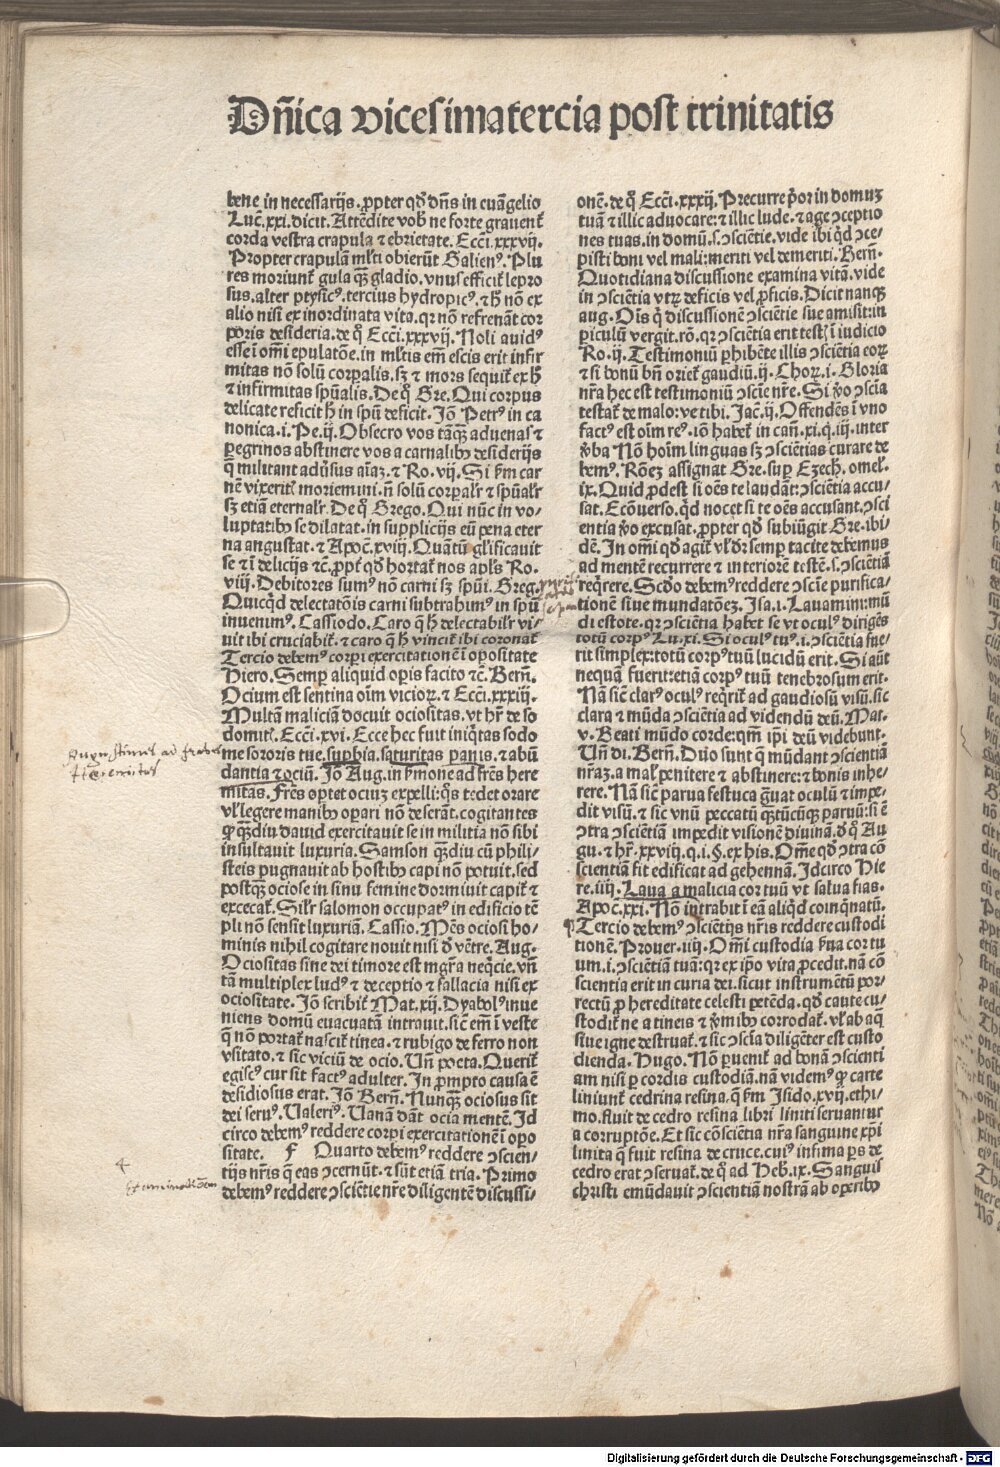 Dn̄ica vicesimatercia post trinitatis
bene in necessarijs. ꝓpter qď dn̄s in euãgelio
Luč.xxi.dicit. Attẽdite vob̃ ne forte grauent᷑
corda vestra crapula ⁊ ebrietate. Ecc̃i.xxxvij.
Propter crapulã ml̃ti obierũt Galienꝰ. Plu
res moriunt᷑ gula qꝫ gladio. vnus efficit᷑ lepro
sus. alter ptysicꝰ. tercius hydropicꝰ. ⁊ h̃ nõ ex
alio nisi ex inordinata vita. qr nõ refrenãt cor
poris desideria. de q̃ Ecc̃i.xxxvij. Noli auidꝰ
esse ĩ om̃i epulatõe. in ml̃tis em̃ escis erit infir
mitas nõ solũ corꝑalis. sꝫ ⁊ mors sequit᷑ ex h̃
⁊ infirmitas spũalis. De q̃ Gre. Qui corpus
delicate reficit h̃ in spũ deficit. Jõ Petrꝰ in ca
nonica.i.Pe.ij. Obsecro vos tãqꝫ aduenas ⁊
ꝑegrinos abstinere vos a carnalibꝰ desiderijs
q̃ militant aduersus aĩaꝫ. ⁊ Ro.vij. Si ẜm car
nẽ vixerit᷑ moriemini. ñ solũ corꝑalr̃ ⁊ spũalr̃
sꝫ etiã eternalr̃. De q̃ Grego. Qui nũc in vo/
luptatibꝰ se dilatat. in supplicijs eũ pena eter
na angustat. ⁊ Apoc̃.xviij. Quãtũ gl̃ificauit
se ⁊ ĩ delicijs ⁊c̃. ꝓpt᷑ qď hortat᷑ nos apl̃s Ro.
viij. Debitores sumꝰ nõ carni sꝫ spũi. Greg.
Quicq̃d delectatõis carni subtrahimꝰ in spũ
inuenimꝰ. Cassiodo. Caro q̃ h̃ delectabilr̃ vi/
uit ibi cruciabit᷑. ⁊ caro q̃ h̃ vincit᷑ ibi coronat᷑
Tercio debemꝰ corꝑi exercitationẽ ĩ oportunitate
Hiero. Semꝑ aliquid oꝑis facito ⁊c̃. Bern̄.
Ocium est sentina oĩm vicioꝝ. ⁊ Ecc̃i.xxxiij.
Multã maliciã docuit ociositas. vt hr̃ de so
domit᷑. Ecc̃i.xvi. Ecce hec fuit iniq̃tas sodo
me sororis tue. suꝑbia. saturitas panis. ⁊ abũ
dantia ⁊ ociũ. Jõ Aug. in ẜmone ad fr̃es here
mitas. Fr̃es optet ociuꝫ expelli: q̃s tedet orare
vl̃ legere manibꝰ oꝑari nõ deserãt. cogitantes
ꝙ qꝫdiu dauid exercitauit se in militia nõ sibi
insultauit luxuria. Samson qꝫdiu cũ phili/
steis pugnauit ab hostibꝰ capi nõ potuit. sed
postqꝫ ociose in sinu femine dormiuit capit᷑ ⁊
excecat᷑. Silr̃ salomon occupatꝰ in edificio tẽ
pli nõ sensit luxuriã. Cassio. Mẽs ociosi ho/
minis nihil cogitare nouit nisi ď vẽtre. Aug.
Ociositas sine dei timore est mgr̃a neq̃cie. vñ
tã multiplex ludꝰ ⁊ deceptio ⁊ fallacia nisi ex
ociositate. Jõ scribit᷑ Mat.xij. Dyabolꝰ inue
niens domũ euacuatã intrauit. sic̃ em̃ ĩ veste
q̃ nõ portat᷑ nascit᷑ tinea. ⁊ rubigo de ferro non
vsitato. ⁊ sic viciũ de ocio. Vñ poeta. Querit᷑
egisꝰ cur sit factꝰ adulter. In ꝓmpto causa ẽ
desidiosus erat. Jõ Bern̄. Nunqꝫ ociosus sit
dei seruꝰ. Ualeriꝰ. Uanã dãt ocia mentẽ. Id
circo debemꝰ reddere corꝑi exercitationẽ ĩ opo
sitate. F Quarto debemꝰ reddere ↄscien/
tijs nr̃is q̃ eas ↄcernũt. ⁊ sũt etiã tria. Primo
debemꝰ reddere ↄsciẽtie nr̃e diligentẽ discussi/
onẽ. de q̃ Ecc̃i.xxxij. Precurre p̃or in domuꝫ
tuã ⁊ illic aduocare: ⁊ illic lude. ⁊ age ↄceptio
nes tuas. in domũ.s.ↄsciẽtie. vide ibi q̃d ↄce/
pisti boni vel mali: meriti vel demeriti. Bern̄.
Quotidiana discussione examina vitã. vide
in ↄsciẽtia vtꝝ deficis vel ꝓficis. Dicit nanqꝫ
aug. Oĩs q̃ discussionẽ ↄsciẽtie sue amisit: in
ꝑiculũ vergit. rõ. qr ↄsciẽtia erit test᷑ ĩ iudicio
Ro.ij. Testimoniũ ꝑhibẽte illis ↄsciẽtia coꝝ
⁊ si bonũ bñ oriet᷑ gaudiũ.ij.Choꝝ.i. Gloria
nr̃a hec est testimoniũ ↄsciẽ nr̃e. Si v̾o ↄsciã
testat᷑ de malo: ve tibi. Jac̃.ij. Offendẽs ĩ vno
factꝰ est oĩm reꝰ. iõ habet᷑ in cañ.xi.q.iij. inter
v̾ba Nõ hoĩm linguas sꝫ ↄsciẽtias curare de
bemꝰ. Rõeꝫ assignat Gre. suꝑ Ezech. omel.
ix. Quid ꝓdest si oẽs te laudãt: ↄsciẽtia accu/
sat. Ecõuerso. q̃d nocet si te oẽs accusant. ↄsci
entia v̾o excusat. ꝓpter qď subiũgit Gre. ibi/
dẽ. In om̃i qď agit᷑ vl̃ dr̃ semꝑ tacite debemus
ad mentẽ recurrere ⁊ interiorẽ testẽ.s.ↄsciẽtiã
req̃rere. Scďo debemꝰ reddere ↄsciẽ purifica/
tionẽ siue mundatõeꝫ. Isa.i. Lauamini: mũ
di estote. qr ↄsciẽtia habet se vt oculꝰ dirigẽs
totũ corpꝰ Lu.xi. Si oculꝰ tuꝰ.i.ↄsciẽtia fue/
rit simplex: totũ corpꝰ tuũ lucidũ erit. Si aũt
nequã fuerit: etiã corpꝰ tuũ tenebrosum erit.
Nã sic̃ clarꝰ oculꝰ req̃rit᷑ ad gaudiosũ visũ. sic
clara ⁊ mũda ↄsciẽtia ad videndũ deũ. Mat.
v. Beati mũdo corde: qm̃ ip̃i deũ videbunt.
Vñ di. Bern̄. Duo sunt q̃ mũdant ↄscientiã
nr̃aꝫ. a mal᷑ penitere ⁊ abstinere: ⁊ bonis inhe/
rere. Nã sic̃ parua festuca g̃uat oculũ ⁊ impe/
dit visũ. ⁊ sic vnũ peccatũ qꝫtũcũqꝫ paruũ: si ẽ
ↄtra ↄsciẽtiã impedit visionẽ diuinã. ď q̃ Au
gu. ⁊ hr̃.xxviij.q.i.§.ex his. Om̃e qď ↄtra cõ
scientiã fit edificat ad gehennã. Idcirco Hie
re.iiij. Laua a malicia cor tuũ vt salua fias.
Apoc̃.xxi. Nõ intrabit ĩ eã aliq̃d coinq̃natũ.
¶ Tercio debemꝰ ↄsciẽtijs nr̃is reddere custodi
tionẽ. Prouer.iiij. Om̃i custodia ẜua cor tu
um.i.ↄsciẽtiã tuã: qr ex ip̃o vita ꝓcedit. nã cõ
scientia erit in curia dei. sicut instrumẽtũ por/
rectũ ꝓ hereditate celesti petẽda. qď caute cu/
stodit᷑ ne a tineis ⁊ v̾mibꝰ corrodat᷑. vl̃ ab aq̃
siue igne destruat᷑. ⁊ sic ↄsciã diligẽter est custo
dienda. Hugo. Nõ ꝑuenit᷑ ad bonã ↄscienti
am nisi ꝑ cordis custodiã. nã videmꝰ ꝙ carte
liniunt᷑ cedrina resina. q̃ ẜm Isido.xvij. ethi/
mo. fluit de cedro resina libri liniti seruantur
a corruptõe. Et sic cõsciẽtia nr̃a sanguine xp̃i
linita q̃ fuit resina de cruce. cuiꝰ infima ꝑs de
cedro erat ↄseruat᷑. de q̃ ad Heb.ix. Sanguis
christi emũdauit ↄscientiã nostrã ab operibꝰ
Augustinus ad fratres
Heremitas
4
Examinationem
Digitalisierung gefördert durch die Deutsche Forschungsgemeinschaft - DFG